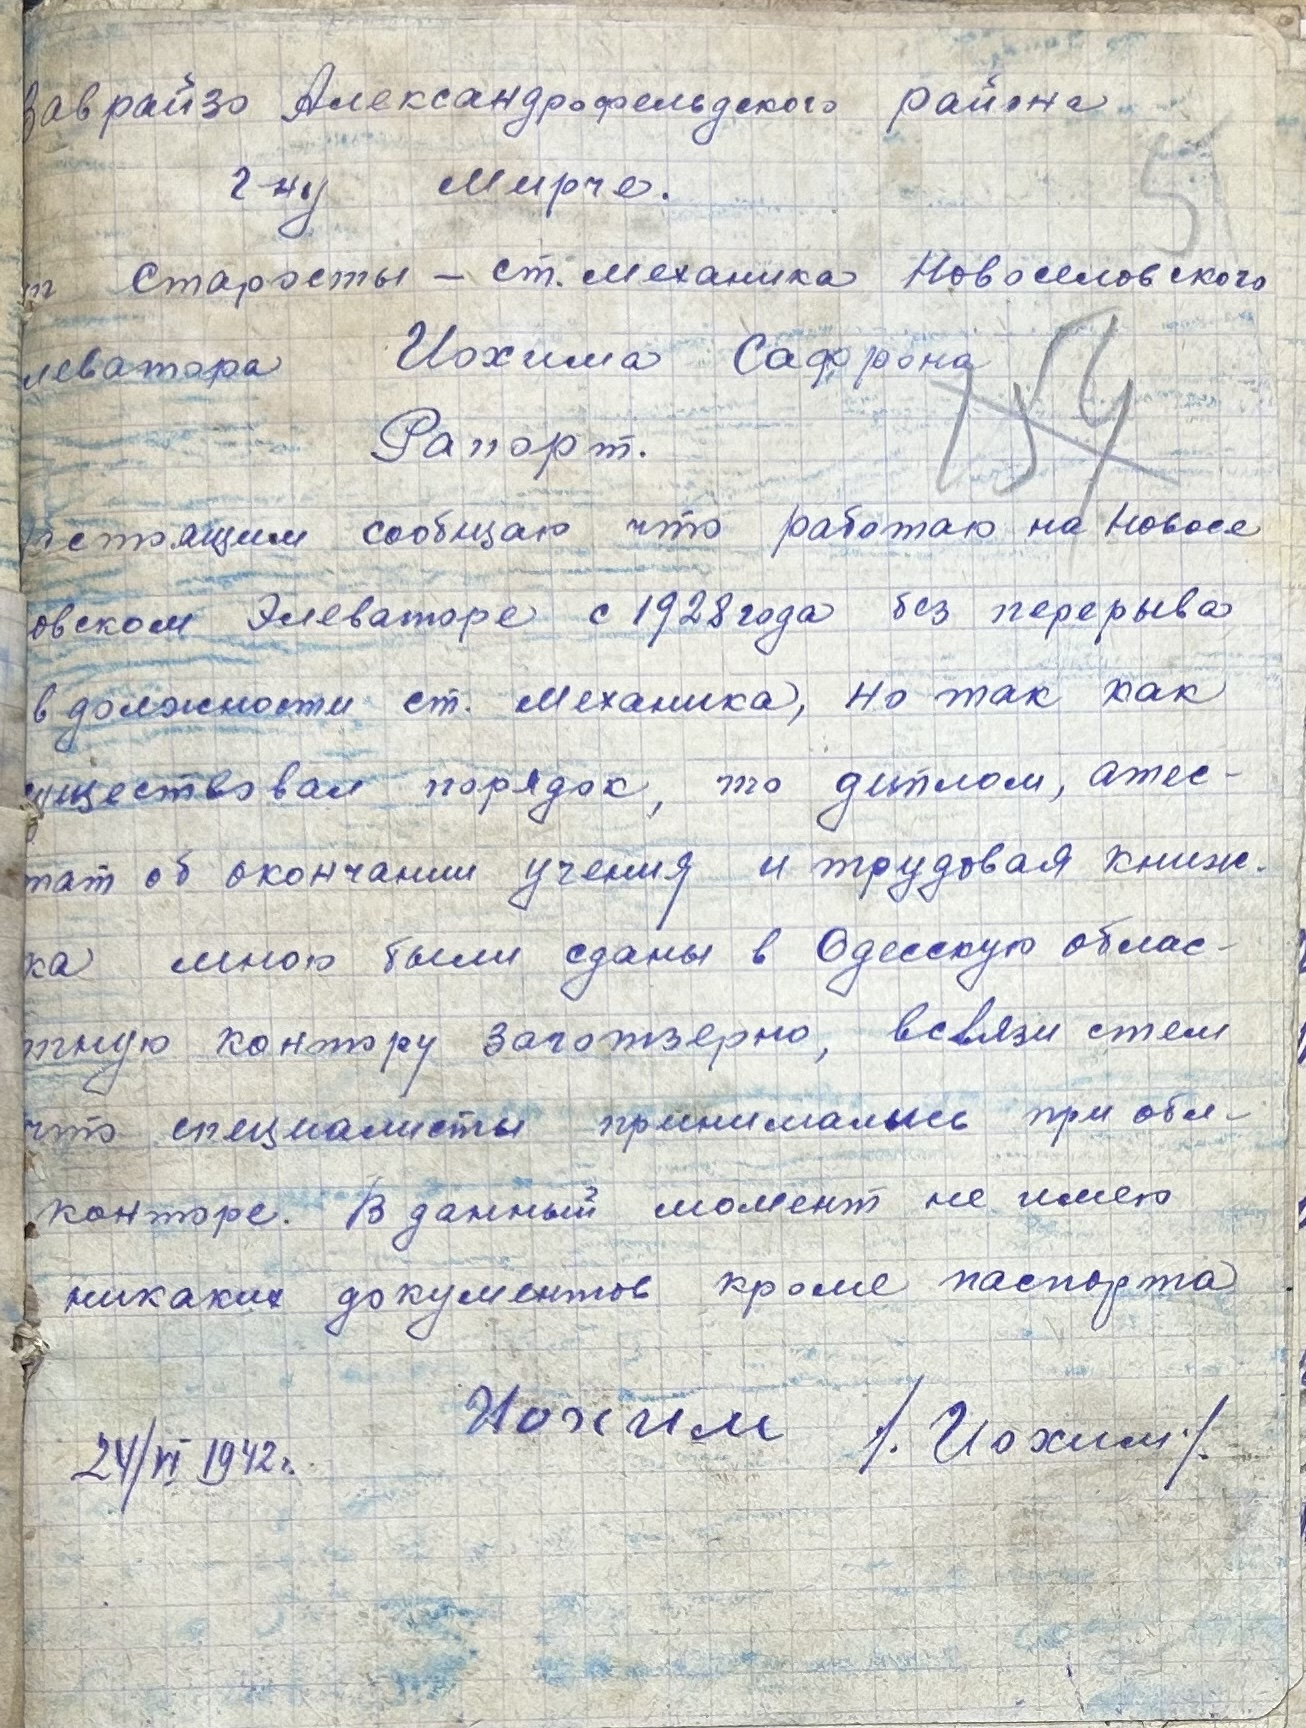 Заврайзо Александрофельдского района
г-ну Мирче.
т Старосты – ст. механика Новоселовского
леватора Иохима Сафрона
Рапорт.
стоящим сообщаю что работаю на Новосе
овском Элеваторе с 1928 года без перерыва
в должности ст. механика, но так как
уществовал порядок, то диплом, атес-
тат об окончании учения и трудовая книж-
ка мною были сданы в Одесскую облас-
тную контору заготзерно, всвязи стем
что специалисты принимались при обл-
конторе. В данный момент не имею
никаких документов кроме паспорта
Иохим /. Иохим./.
24/VI 1942 г.
5
154